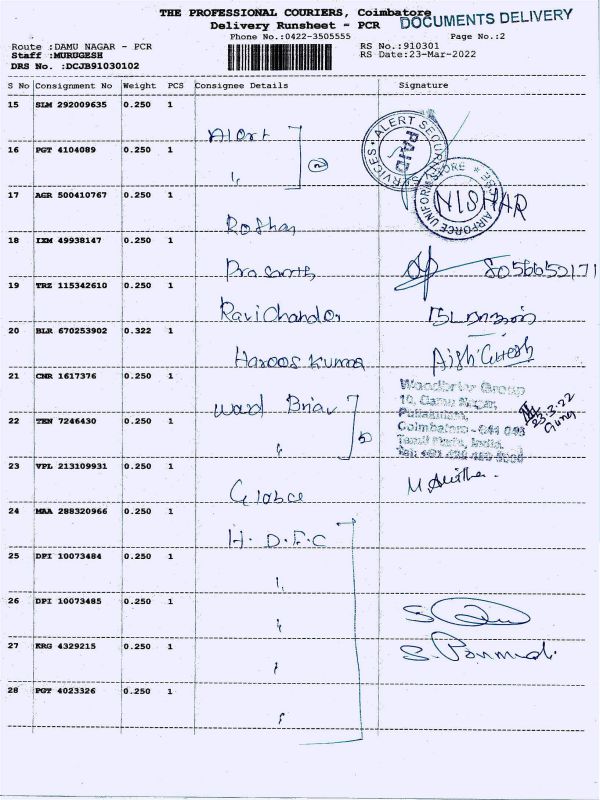 THE PROFESSIONAL COURIERS, Coimbatore
DOCUMENTS DELIVERY
Delivery Runsheet - PCR
Phone No.:0422-3505555 Page No.:2
Route :DAMU NAGAR - PCR RS No.:910301
Staff :MURUGESH RS Date:23-Mar-2022
DRS No. :DCJB91030102
S No Consignment No Weight PCS Consignee Details Signature
15 SLM 292009635 0.250 1
Alert
ALERT SECURITY SERVICES PAID
16 PGT 4104089 0.250 1
〃 2
AIRFORCE UNIFORM STORE
17 AGR 500410767 0.250 1
NISHAR
Roshan
18 IXM 49938147 0.250 1
Prasanth 8056652171
19 TRZ 115342610 0.250 1
Ravi Chander
20 BLR 670253902 0.322 1
Haroos Kumar
21 CNR 1617376 0.250 1
Woodbriar Group
10, Damu Nagar,
Ward Briar
Puliakulam,
23.3.22
22 TEN 7246430 0.250 1
Coimbatore - 641 045
Tamil Nadu, India.
23 VPL 213109931 0.250 1
24 MAA 288320966 0.250 1
H.D.F.C
25 DPI 10073484 0.250 1
〃
26 DPI 10073485 0.250 1
〃
27 KRG 4329215 0.250 1
〃
28 PGT 4023326 0.250 1
〃